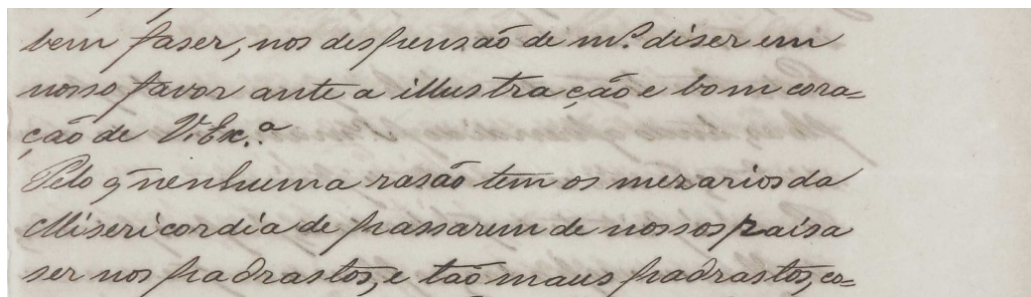 bem faser, nos dispensão de m.º diser em
nosso favor ante a illustração e bom cora=
ção de V. Ex.ª
Pelo q̃ nenhuma rasão tem os mezarios da
Misericordia de passarem de nossos pais a
ser nos padrastos, e tão maus padrastos, co=